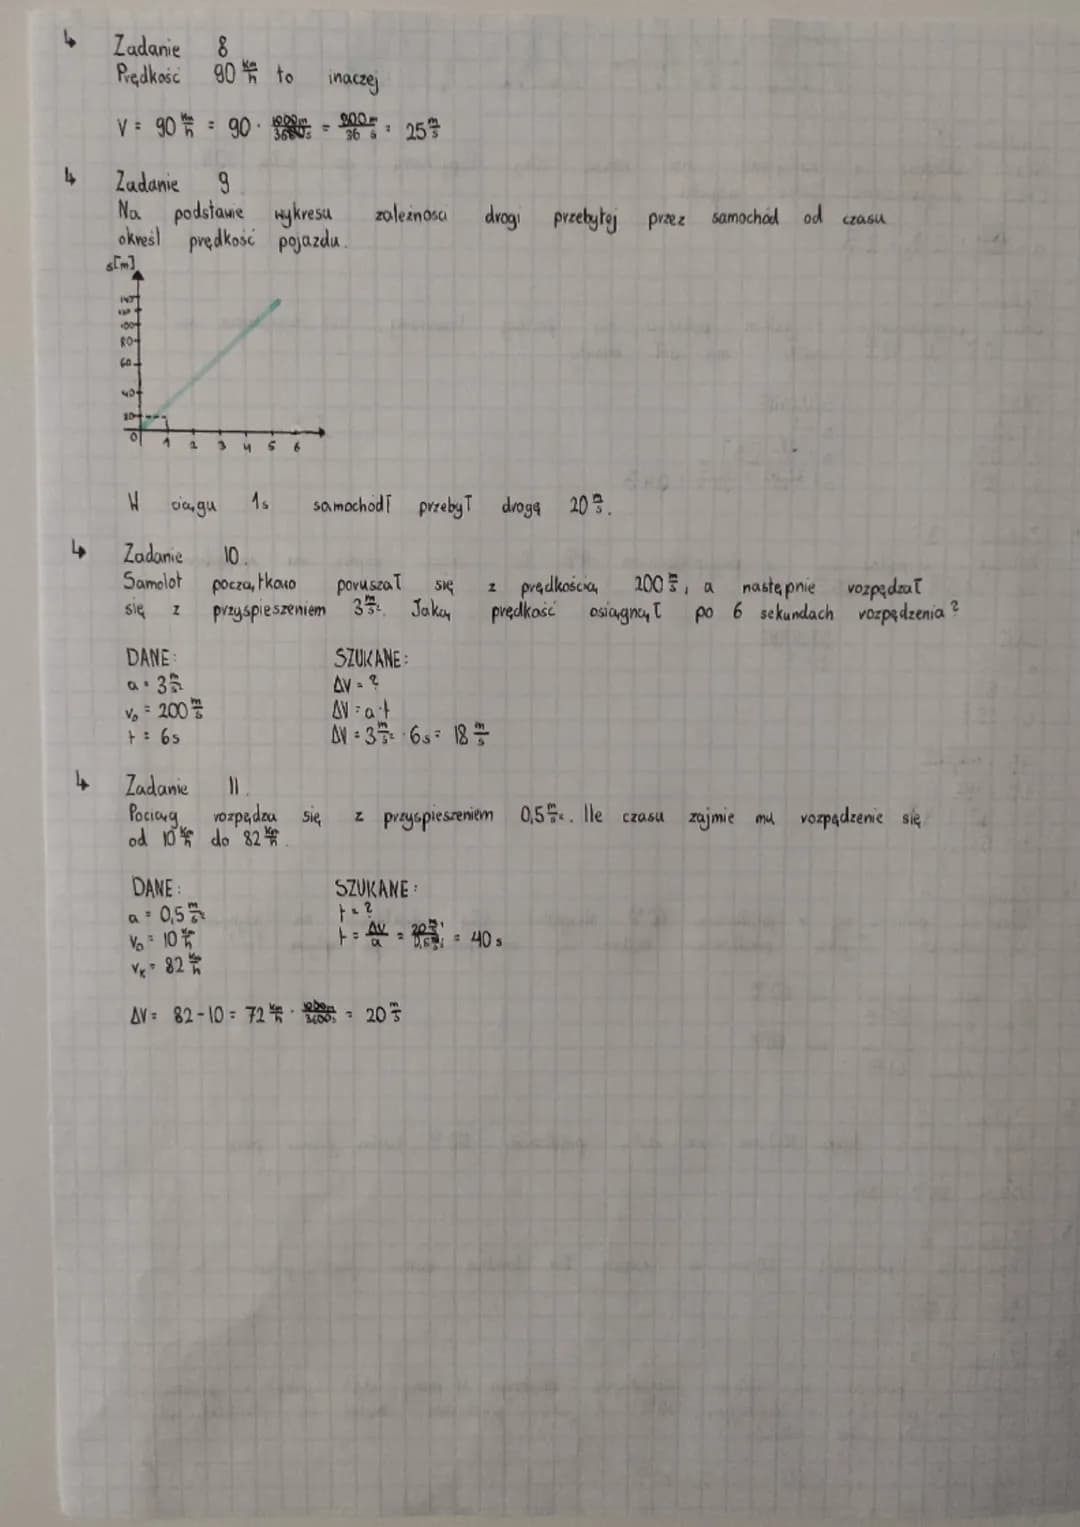 ↳ Zadanie 8
Prędkość 90 km/h to inaczej
V = 90 km/h = 90 · 1000m/3600s = 900m/36s = 25 m/s
↳ Zadanie 9
Na podstawie wykresu zależności drogi przebytej przez samochód od czasu
określ prędkość pojazdu.
s[m]
140
120
100
80
60
40
20
0 1 2 3 4 5 6
W ciągu 1s samochód przebył drogę 20 m/s.
↳ Zadanie 10.
Samolot początkowo poruszał się z prędkością 200 m/s, a następnie rozpędzał
się z przyspieszeniem 3 m/s². Jaką prędkość osiągnął po 6 sekundach rozpędzenia?
DANE: SZUKANE:
a = 3 m/s² ΔV = ?
v₀ = 200 m/s ΔV = a·t
t = 6s ΔV = 3 m/s² · 6s = 18 m/s
↳ Zadanie 11.
Pociąg rozpędza się z przyspieszeniem 0,5 m/s². Ile czasu zajmie mu rozpądzenie się
od 10 km/h do 82 km/h.
DANE: SZUKANE:
a = 0,5 m/s² t = ?
V₀ = 10 km/h t = ΔV/a = 20 m/s / 0,5 m/s² = 40 s
Vₖ = 82 km/h
ΔV = 82-10 = 72 km/h · 1000m/3600s = 20 m/s